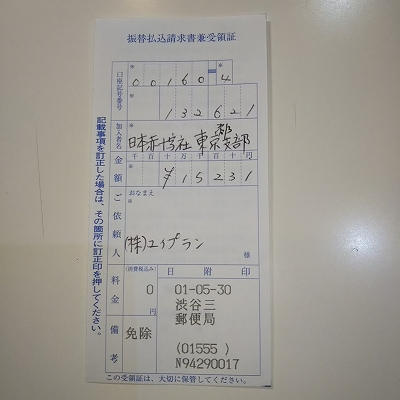 振替払込請求書兼受領証
口座記号番号
00160 4
132621
加入者名
日本赤十字社 東京都支部
金額
千 百 十 万 千 百 十 円
¥15231
ご依頼人
おなまえ
(株)エイプラン
様
料金
(消費税込み)
0
円
備考
免除
日附印
01-05-30
渋谷三
郵便局
(01555 )
N94290017
記載事項を訂正した場合は、その箇所に訂正印を押してください。
この受領証は、大切に保管してください。